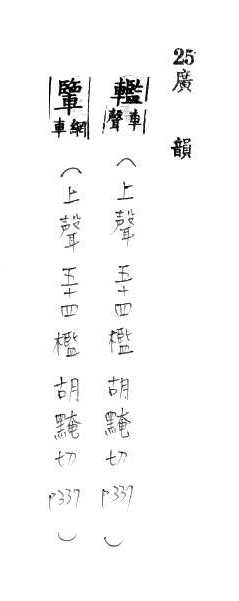 25廣韻
轞車聲(上聲 五十四檻 胡黤切 p337)
網車(上聲 五十四檻 胡黤切 p337)